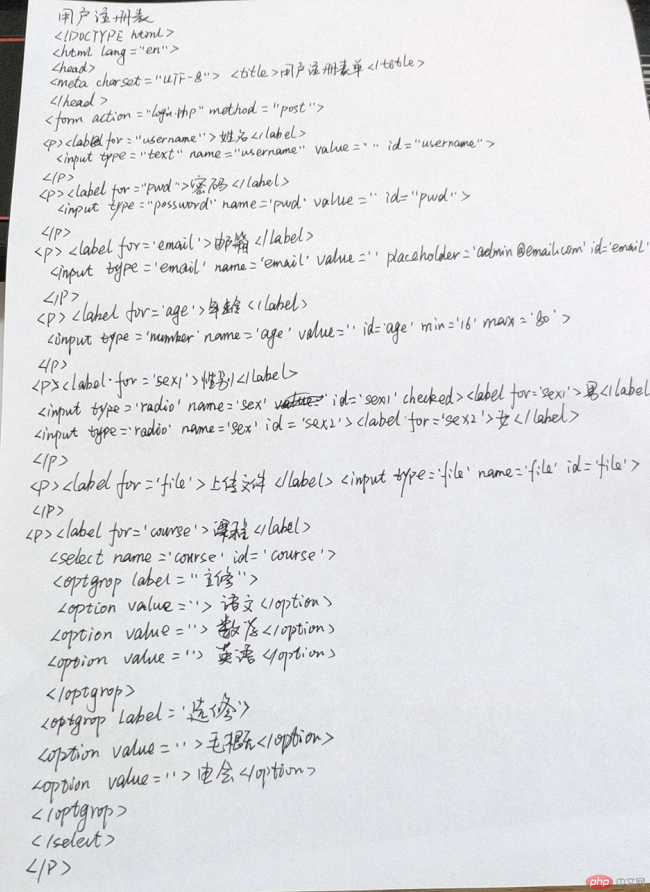 用户注册表
<!DOCTYPE html>
<html lang="en">
<head>
<meta charset="UTF-8"> <title>用户注册表单</title>
</head>
<form action="login.php" method="post">
<p><label for="username">姓名</label>
<input type="text" name="username" value="" id="username">
</p>
<p><label for="pwd">密码</label>
<input type="password" name='pwd' value='' id="pwd">
</p>
<p><label for='email'>邮箱</label>
<input type='email' name='email' value='' placeholder='admin@email.com' id='email'
</p>
<p><label for='age'>年龄</label>
<input type='number' name='age' value='' id='age' min='16' max='80'>
</p>
<p><label for='sex1'>性别</label>
<input type='radio' name='sex' id='sex1' checked><label for='sex1'>男</label
<input type='radio' name='sex' id='sex2'><label for='sex2'>女</label>
</p>
<p><label for='file'>上传文件</label><input type='file' name='file' id='file'>
</p>
<p><label for='course'>课程</label>
<select name='course' id='course'>
<optgrop label="主修">
<option value=''>语文</option>
<option value=''>数学</option>
<option value=''>英语</option>
</optgrop>
<optgrop label='选修'>
<option value=''>毛概</option>
<option value=''>电会</option>
</optgrop>
</select>
</p>
php 中文网